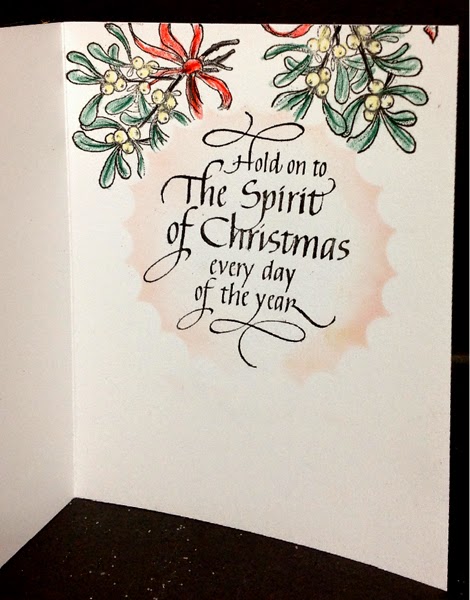 Hold on to
The Spirit
of Christmas
every day
of the year